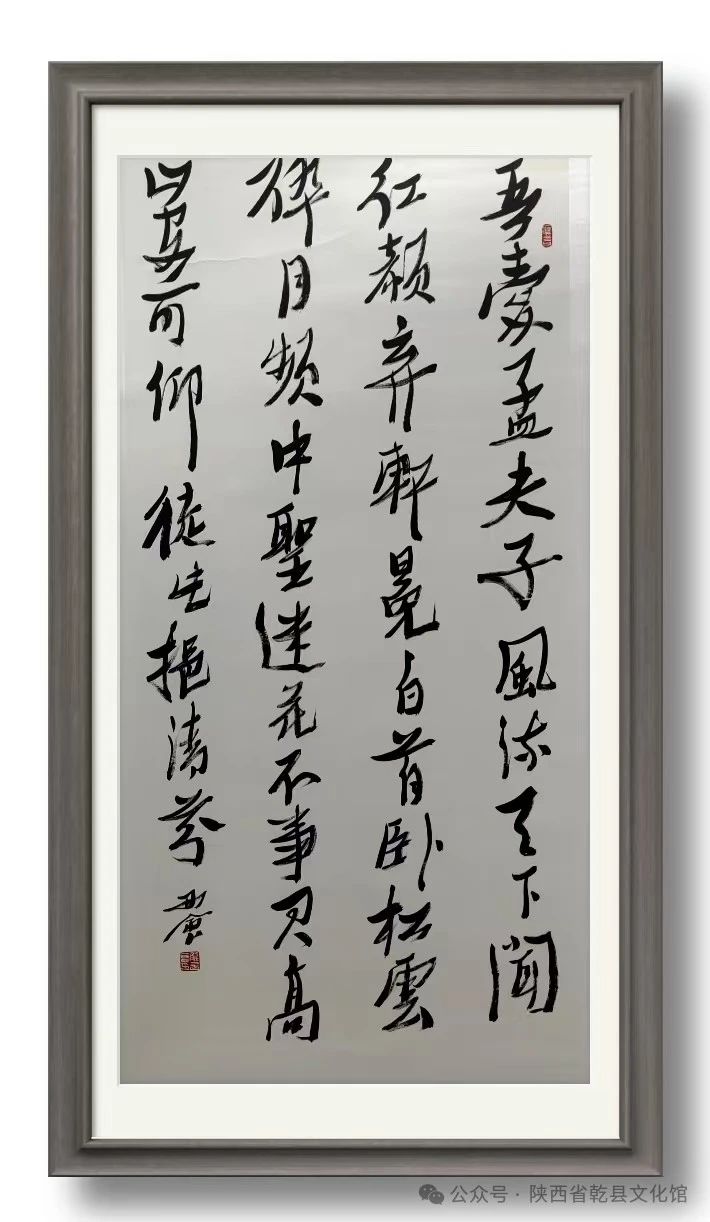 吾愛孟夫子風流天下聞
红顏弃軒冕白首卧松雲
醉月頻中聖迷花不事君高
山安可仰徒此挹清芬
公众号·陕西省乾县文化馆